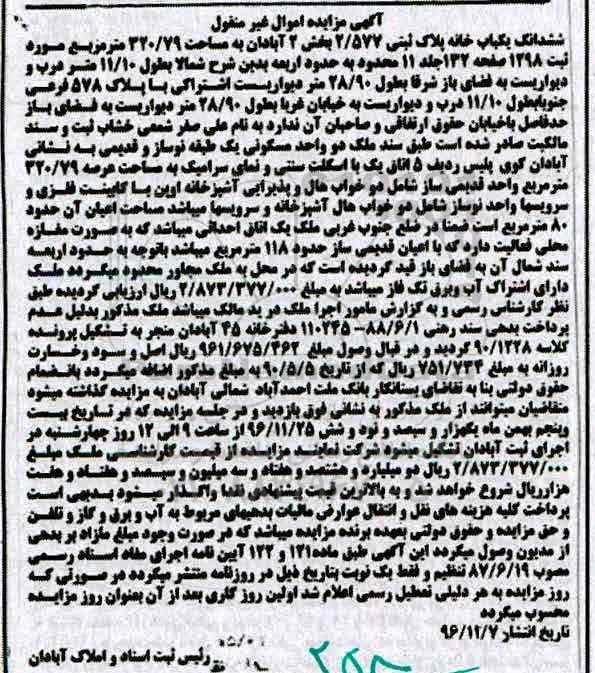 آگهی مزایده اموال غیر منقول
ششدانگ یکباب خانه پلاک ثبتی ۲/۵۷۷ بخش ۲ آبادان به مساحت ۳۲۰/۷۹ مترمربع مورد
ثبت ۱۲۹۸ صفحه ۱۳۲جلد ۱۱ محدود به حدود اربعه بدین شرح شمالا بطول ۱۱/۱۰ متر درب و
دیواریست به فضای باز شرقا بطول ۲۸/۹۰ متر دیواریست اشتراکی با پلاک ۵۷۸ فرعی
جنوبابطول ۱۱/۱۰ درب و دیواریست به خیابان غربا بطول ۲۸/۹۰ متر دیواریست به فضای باز
حدفاصل باخیابان حقوق ارتفاقی و صاحبان آن ندارد به نام علی صفر شمعی خشاب ثبت و سند
مالکیت صادر شده است طبق سند ملک دو واحد مسکونی یک طبقه نوساز و قدیمی به نشانی
آبادان کوی پلیس ردیف ۵ اتاق یک با اسکلت سنتی و نمای سرامیک به مساحت عرصه ۳۲۰/۷۹
مترمربع واحد قدیمی ساز شامل دو خواب هال و پذیرایی آشپزخانه اوپن با کابینت فلزی و
سرویسها واحد نوساز شامل دو خواب هال آشپزخانه و سرویسها میباشد مساحت اعیان آن حدود
۸۰ مترمربع است ضمنا در ضلع جنوب غربی ملک یک اتاق احداثی میباشد که به صورت مغازه
محلی فعالیت دارد که با اعیان قدیمی ساز حدود ۱۱۸ مترمربع میباشد باتوجه به حدود اربعه
سند شمال آن به فضای باز قید گردیده است که در محل به ملک مجاور محدود میگردد ملک
دارای اشتراک آب وبرق تک فاز میباشد به مبلغ ۲/۸۷۳/۳۷۷/۰۰۰ ریال ارزیابی گردیده طبق
نظر کارشناس رسمی و به گزارش مامور اجرا ملک در ید مالک میباشد ملک مذکور بدلیل عدم
پرداخت بدهی سند رهنی ۱۱۰۲۴۵-۸۸/۶/۱ دفترخانه ۴۵ آبادان منجر به تشکیل پرونده
کلاسه ۹۰/۱۲۲۸ گردید و در قبال وصول مبلغ ۹۶۱/۶۷۵/۴۶۲ ریال اصل و سود وخسارت
روزانه به مبلغ ۷۵۱/۷۳۴ ریال که از تاریخ ۹۰/۵/۵ به مبلغ مذکور اضافه میگردد بانضمام
حقوق دولتی بنا به تقاضای بستانکار بانک ملت احمدآباد شمالی آبادان به مزایده گذاشته میشود
متقاضیان میتوانند از ملک مذکور به نشانی فوق بازدید و در جلسه مزایده که در تاریخ بیست
وپنجم بهمن ماه یکهزار و سیصد و نود و شش ۹۶/۱۱/۲۵ از ساعت ۹ الی ۱۲ روز چهارشنبه در
اجرای ثبت آبادان تشکیل میشود شرکت نمایند مزایده از قیمت کارشناسی ملک مبلغ
۲/۸۷۳/۳۷۷/۰۰۰ ریال دو میلیارد و هشتصد و هفتاد و سه میلیون و سیصد و هفتاد و هفت
هزارریال شروع خواهد شد و به بالاترین قیمت پیشنهادی نقدا واگذار میشود بدیهی است
پرداخت کلیه هزینه های نقل و انتقال عوارض مالیات بدهیهای مربوط به آب و برق و گاز و تلفن
و حق مزایده و حقوق دولتی بعهده برنده مزایده میباشد که در صورت وجود مبلغ مازاد بر بدهی
از مدیون وصول میگردد این آگهی طبق ماده۱۲۱ و ۱۲۲ آیین نامه اجرای مفاد اسناد رسمی
مصوب ۸۷/۶/۱۹ تنظیم و فقط یک نوبت بتاریخ ذیل در روزنامه منتشر میگردد در صورتی که
روز مزایده به هر دلیلی تعطیل رسمی اعلام شد اولین روز کاری بعد از آن بعنوان روز مزایده
محسوب میگردد
تاریخ انتشار ۹۶/۱۲/۷
رئیس ثبت اسناد و املاک آبادان